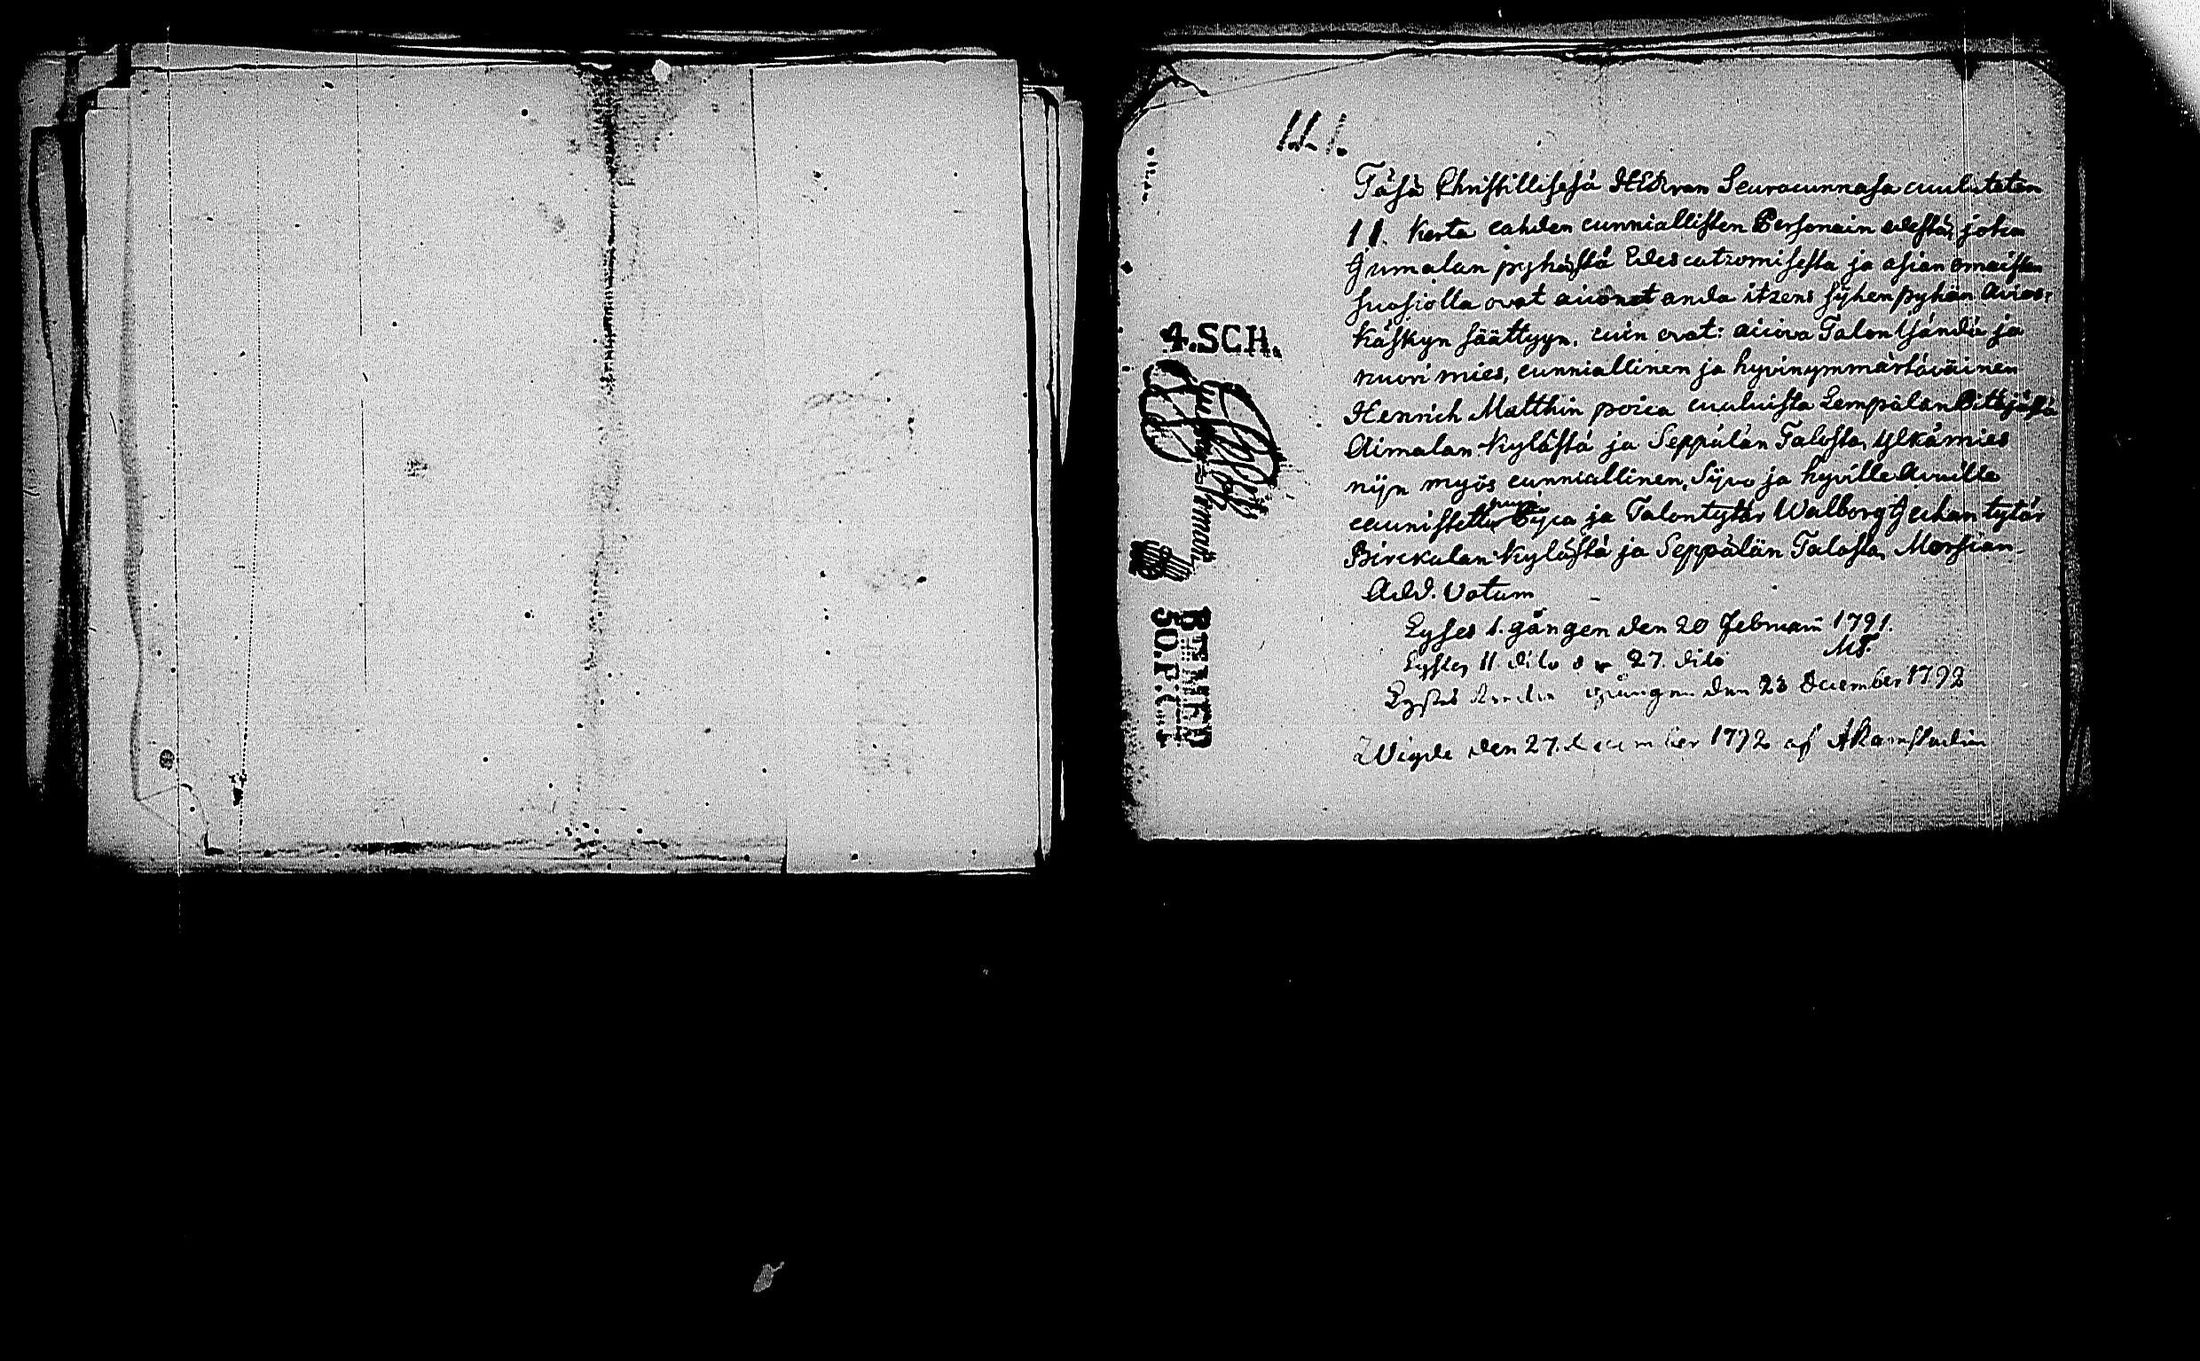 11.1.
Täsä Christillisesä HERran Seuracunnasa cuulutetan
11. Kerta cahden cunniallisten Personain edestä, jotca
Jumalan pyhästä Edescatzomisesta ja asian omaisten
suosiolla ovat aiconet anda itzens sijhen pyhän Avios-
käskyn säättyyn, cuin ovat: aicova Talon Isändä ja
nuori mies, cunniallinen ja hyvinymmärtäväinen
Henrich Matthin poica cuuluista Lempälän Pitäjästä
Aimalan Kylästä ja Seppälän Talosta, Ylkämies
nijn myös cunniallinen, Sijviä ja hyville Avuille
caunistettu Pijca ja Talontytär Walborg Juhan tytär
Birckalan Kylästä ja Seppälän Talosta, Morsian
Add. Votum
Lyses 1. gången den 20 Februarii 1791.
Lystes 11. dito d. 27. dito
Lystes gången den 23 December 1792
Wigde den 27. December 1792 af
4.SCH.
BTEMPED
50.P.C.